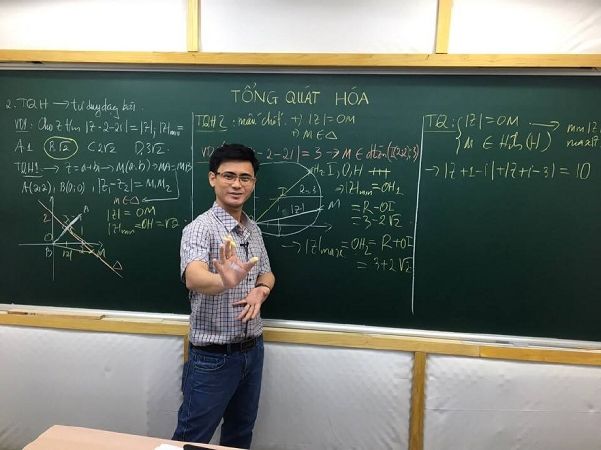 TỔNG QUÁT HÓA
2. TQH → tư duy dạng bài.
VD1: Cho z t/m |z-2-2i| = |z|, |z|min =
A 1 B. √2 C. 2√2 D. 3√2.
TQH1: z = a+bi → M(a,b) → MA = MB
A(2,2), B(0;0), |z₁-z₂| = M₁M₂
M ∈ Δ
|z| = OM
|z|min = OH = √2
2
B
|z|
M
Δ
TQH2: mấu chốt. +) |z| = OM
+) M ∈
-2-2i| = 3 → M ∈
I, O, H
→ |z|min = OH₁
= R-OI
= 3-2√2
I
|z|
M
→ |z|max = OH₂ = R+OI
= 3+2√2
TQ: |z| = OM
M ∈ (H)
→ min |z|
max |z|
→ |z+1-i| + |z+i-3| = 10